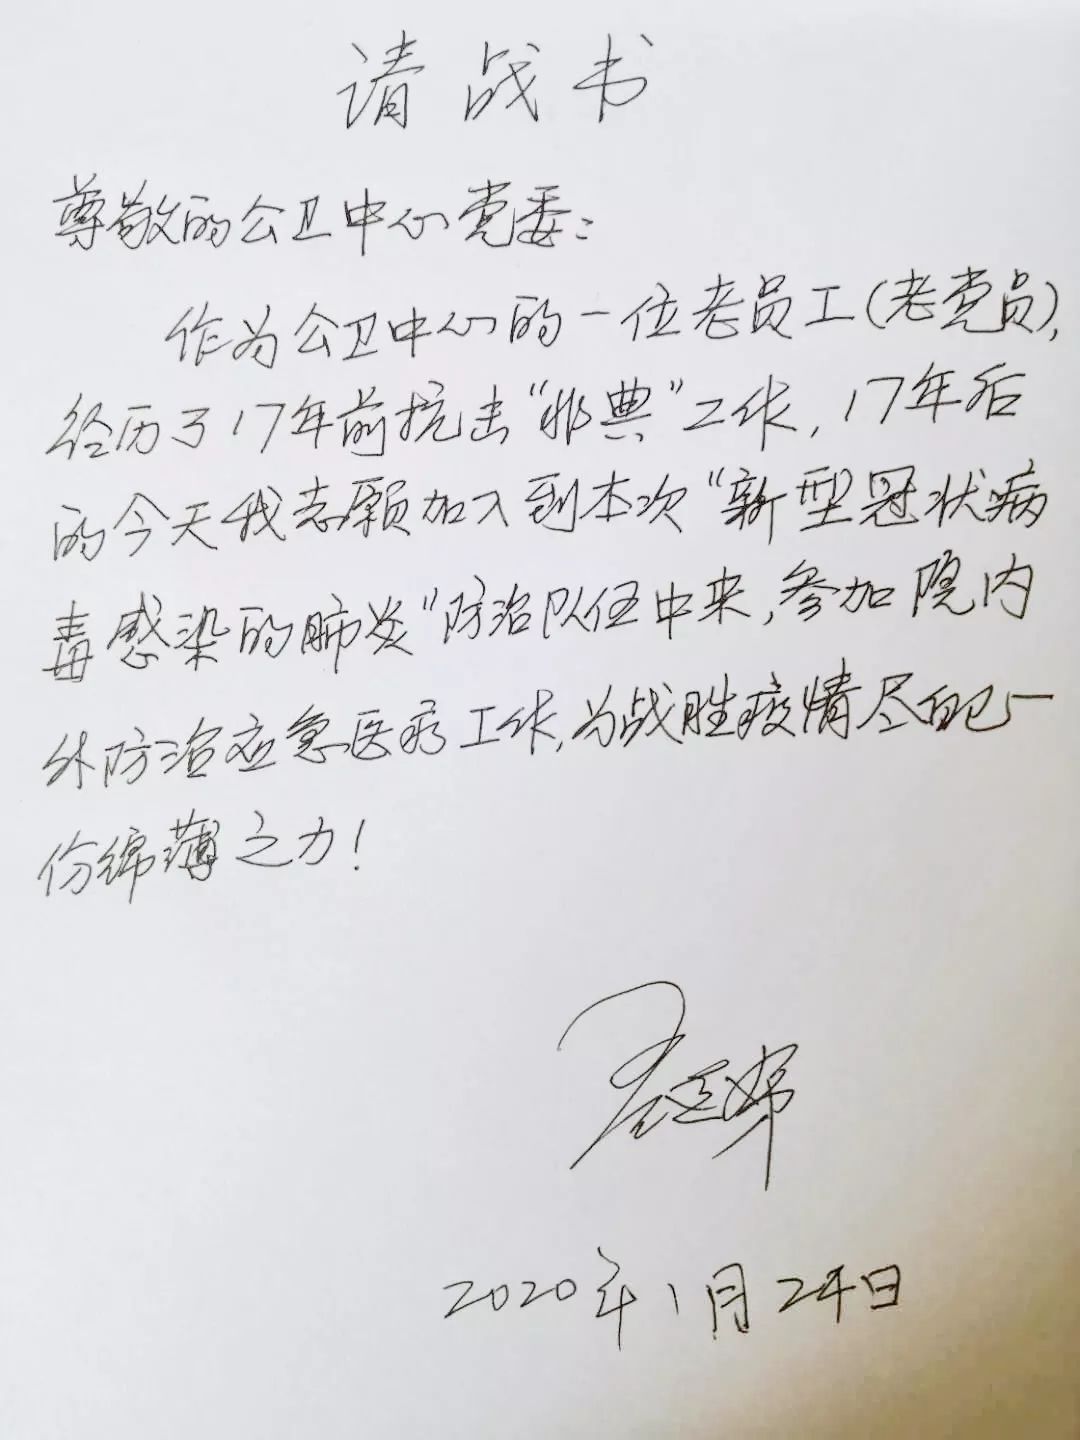 请战书
尊敬的公卫中心党委：
作为公卫中心的一位老员工(老党员),
经历了17年前抗击“非典”工作,17年后
的今天我志愿加入到本次“新型冠状病
毒感染的肺炎”防治队伍中来,参加院内
外防治应急医疗工作,为战胜疫情尽自己一
份绵薄之力!
2020年1月24日